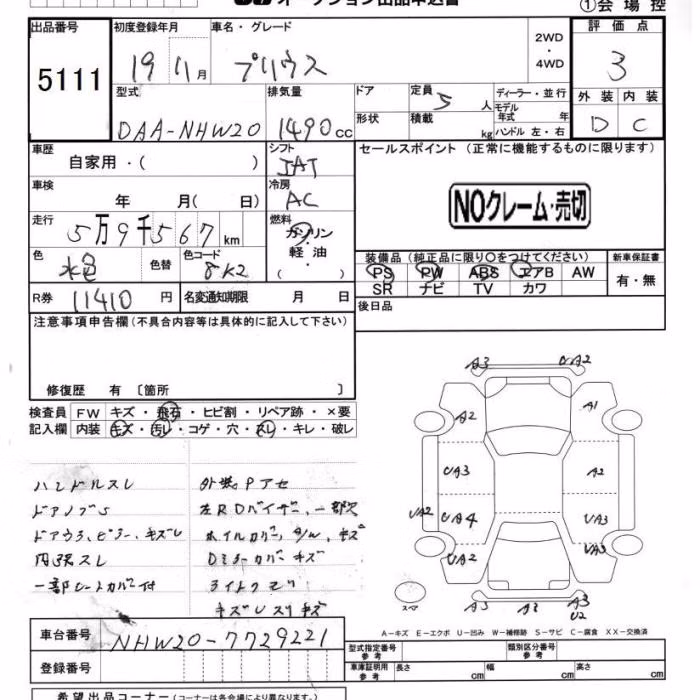 オークション出品申込書
①会場控
出品番号
5111
初度登録年月
19 11月
車名・グレード
プリウス
2WD
・
4WD
評価点
3
型式
DAA-NHW20
排気量
1490cc
ドア
形状
定員 5 人
積載 kg
ディーラー・並行
モデル年式 年
ハンドル 左・右
外装 内装
D C
車歴
自家用・( )
シフト
IAT
セールスポイント (正常に機能するものに限ります)
NOクレーム・売切
車検
年 月( 日)
冷房
AC
走行
5万9千567km
燃料
ガソリン
軽油
( ・ )
色
水色
色替
色コード
8K2
装備品 (純正品に限り○をつけてください)
PS PW ABS エアB AW
SR ナビ TV カワ
新車保証書
有・無
R券
11410円
名変通知期限 月 日
後日品
注意事項申告欄(不具合内容等は具体的に記入して下さい)
修復歴 有 〔箇所 〕
検査員
記入欄
FW キズ・飛石・ヒビ割・リペア跡・×要
内装 キズ・汚レ・コゲ・穴・スレ・キレ・破レ
ハンドルスレ
ドアノブS
ドアウチ、ピラー、キズレ
内張スレ
一部シートカバー付
外装Pアセ
左RDバイザー、一部欠
ホイルカバー、A/W、キズ
Dミラーカバーキズ
ライトクモリ
キズレスリキズ
A3 UA2
A2 A1
UA3 A2
UA2 UA4 UA3
UA2 UA3
A3 A2 A3
U2
スペア
A-キズ E-エクボ U-凹み W-補修跡 S-サビ C-腐食 XX-交換済
車台番号
NHW20-7729221
登録番号
型式指定番号
参考
類別区分番号
参考
車庫証明用
参考
長さ cm 幅 cm 高さ cm
希望出品コーナー(コーナーは各会場により異なります。)